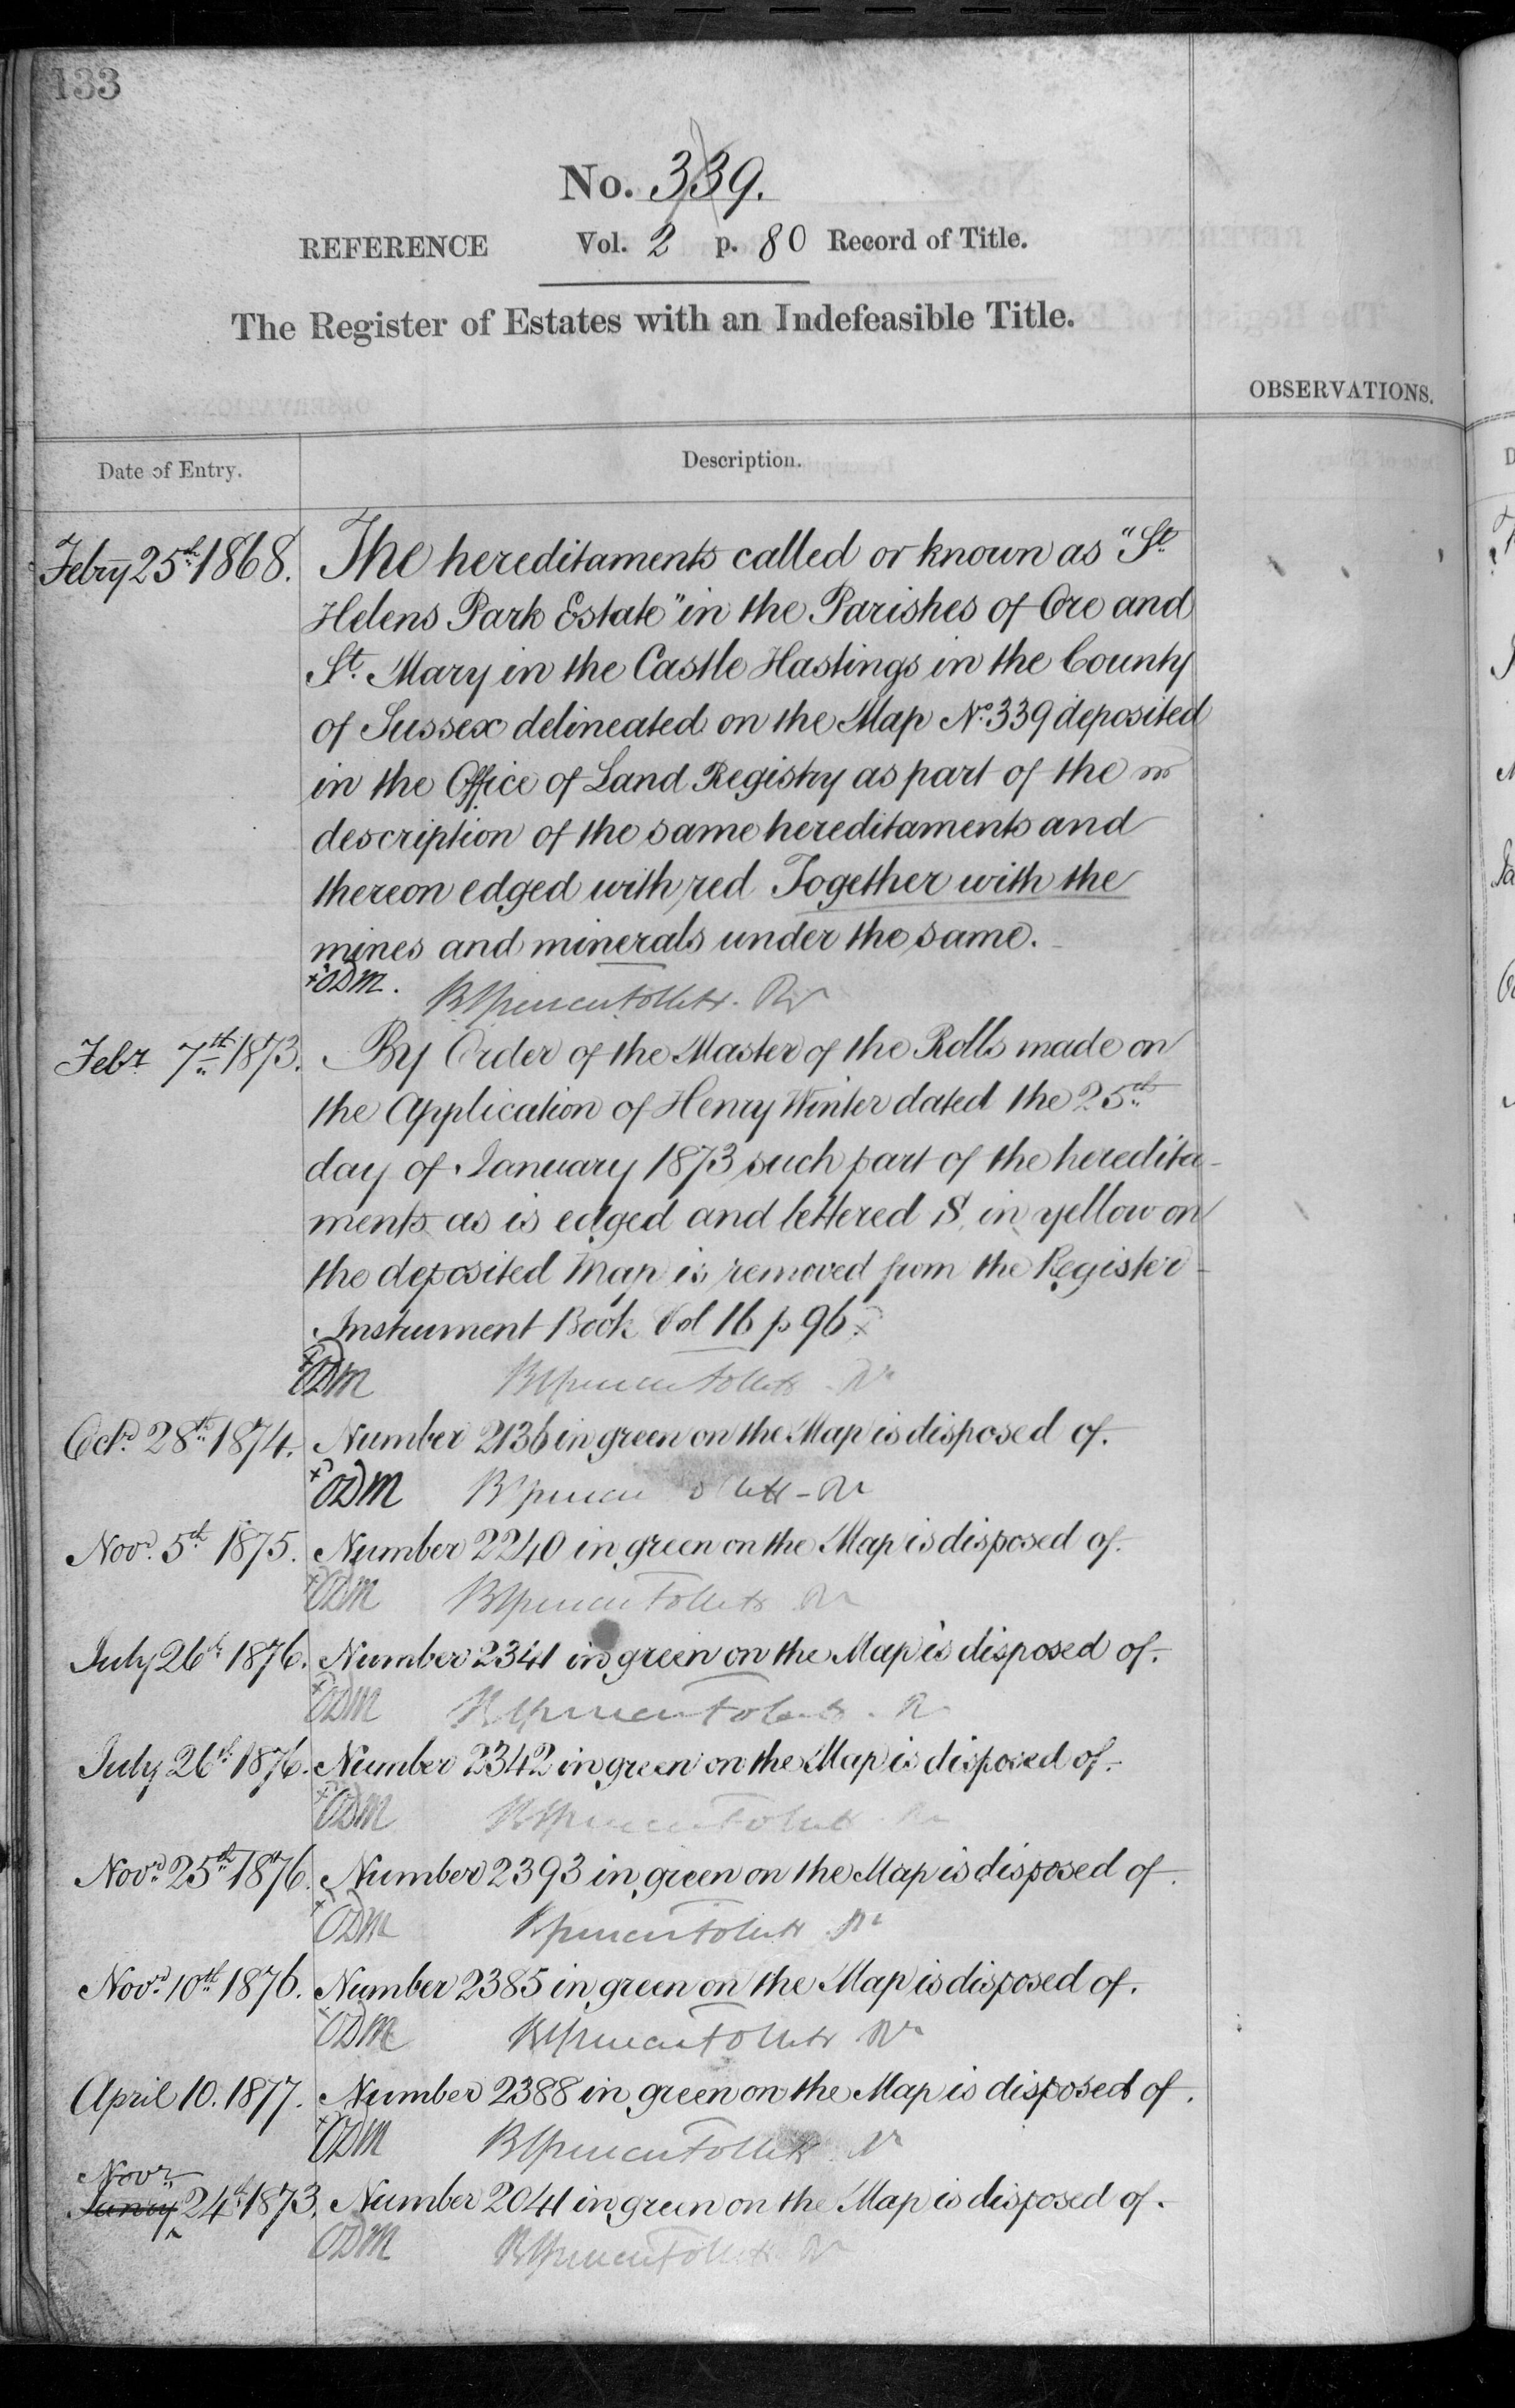 133
No. 339.
REFERENCE Vol. 2 p. 80 Record of Title.
The Register of Estates with an Indefeasible Title.
OBSERVATIONS.
Date of Entry. Description.
Febry 25th 1868. The hereditaments called or known as "St.
Helens Park Estate" in the Parishes of Ore and
St. Mary in the Castle Hastings in the County
of Sussex delineated on the Map No. 339 deposited
in the Office of Land Registry as part of the
description of the same hereditaments and
thereon edged with red Together with the
mines and minerals under the same.
ODM. Brent Spencer Follett. Rr
Febr. 7th 1873. By Order of the Master of the Rolls made on
the Application of Henry Winter dated the 25th
day of January 1873 such part of the heredita-
ments as is edged and lettered S, in yellow on
the deposited Map is removed from the Register
Instrument Book Vol 16 p 96.
ODM
Octr. 28th 1874. Number 2136 in green on the Map is disposed of.
ODM
Novr. 5th 1875. Number 2240 in green on the Map is disposed of.
ODM
July 26th 1876. Number 2341 in green on the Map is disposed of.
ODM
July 26th 1876. Number 2342 in green on the Map is disposed of.
ODM
Novr. 25th 1876. Number 2393 in green on the Map is disposed of.
ODM
Novr. 10th 1876. Number 2385 in green on the Map is disposed of.
ODM
April 10. 1877. Number 2388 in green on the Map is disposed of.
ODM
Novr.
Janry 24th 1873. Number 2041 in green on the Map is disposed of.
ODM